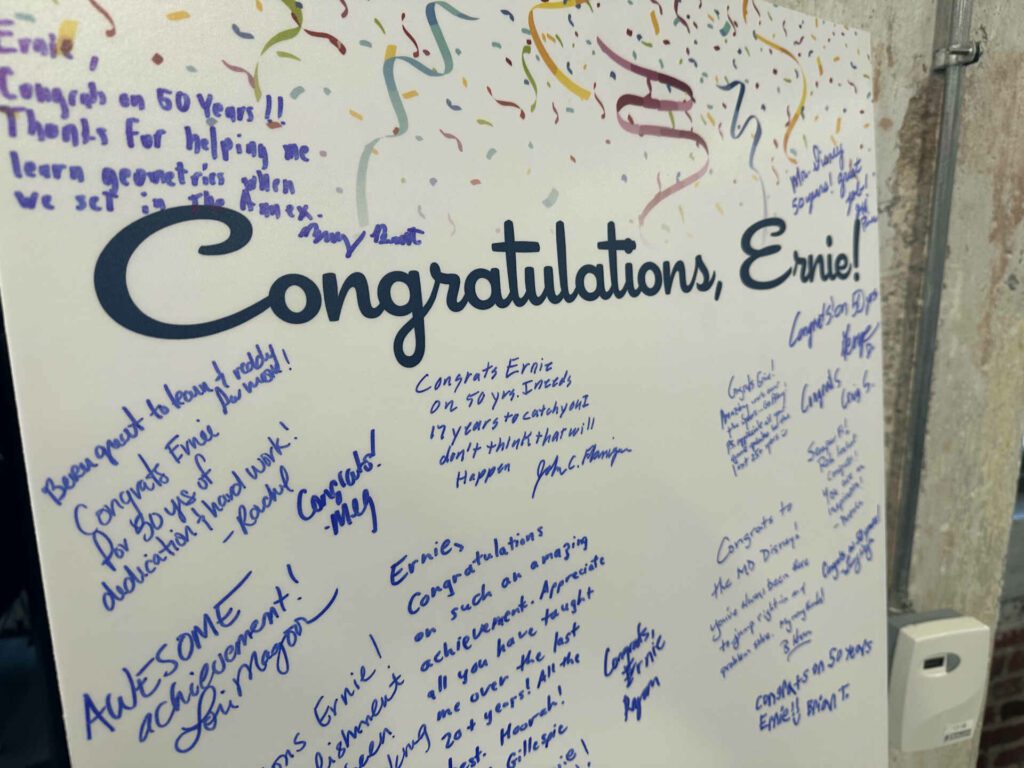 Ernie,
Congrats on 50 Years!!
Thanks For helping me
learn geometries when
we set in the Annex.
Mr. Disney
50 years! Great
Congratulations, Ernie!
Congrats! on 50 yrs
Been great to learn & ready
for more!
Congrats Ernie
for 50 yrs of
dedication & hard work!
- Rachel
Congrats!
- Meg
Congrats Ernie
on 50 yrs. I needs
17 years to catch you I
don't think that will
Happen John C. Flanigan
Congrats Ernie!
Congrats,
Craig S.
Congrats!
You are an
inspiration!
AWESOME
achievement!
Lori Magoon
Ernie,
Congratulations
on such an amazing
achievement. Appreciate
all you have taught
me over the last
20+ years! All the
best. Hoorah!
Gillespie
Ernie!
Congrats,
Ernie
Ryan
Congrats to
the MD Disney!
You've always been there
to jump right in any
problem solve.
Congrats on 50 years
Ernie!! Brian T.